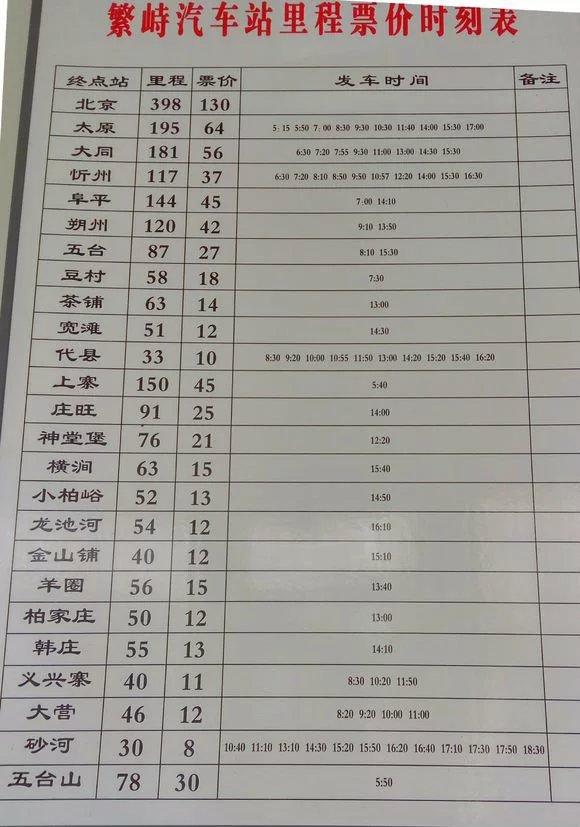 繁峙汽车站里程票价时刻表
终点站 里程 票价 发车时间 备注
北京 398 130
太原 195 64 5:15 5:50 7:00 8:30 9:30 10:30 11:40 14:00 15:30 17:00
大同 181 56 6:30 7:20 7:55 9:30 11:00 13:00 14:30 15:30
忻州 117 37 6:30 7:20 8:10 8:50 9:50 10:57 12:20 14:00 15:30 16:30
阜平 144 45 7:00 14:10
朔州 120 42 9:10 13:50
五台 87 27 8:10 15:30
豆村 58 18 7:30
茶铺 63 14 13:00
宽滩 51 12 14:30
代县 33 10 8:30 9:20 10:00 10:55 11:50 13:00 14:20 15:20 15:40 16:20
上寨 150 45 5:40
庄旺 91 25 14:00
神堂堡 76 21 12:20
横涧 63 15 15:40
小柏峪 52 13 14:50
龙池河 54 12 16:10
金山铺 40 12 15:10
羊圈 56 15 13:40
柏家庄 50 12 13:00
韩庄 55 13 14:10
义兴寨 40 11 8:30 10:20 11:50
大营 46 12 8:20 9:20 10:00 11:00
砂河 30 8 10:40 11:10 13:10 14:30 15:20 15:50 16:20 16:40 17:10 17:30 17:50 18:30
五台山 78 30 5:50